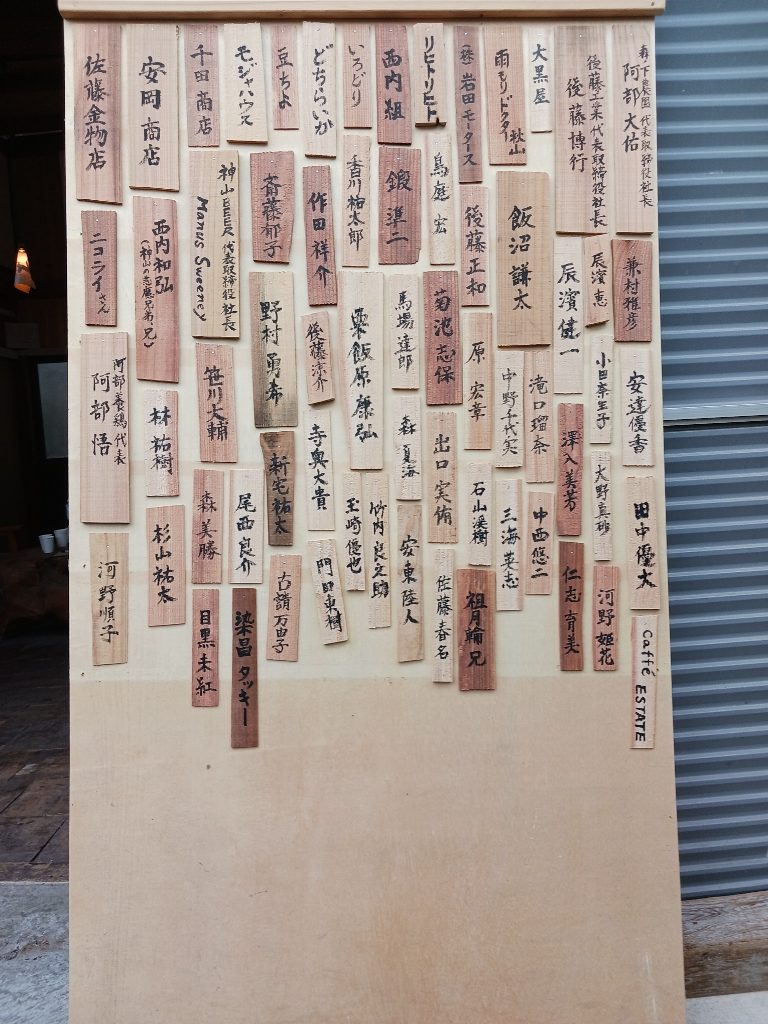 代表取締役社長
阿部 大佑
後藤工業代表取締役社長
後藤博行
大黒屋
雨もりドクター秋山
(株)岩田モータース
リヒトリヒト
西内組
いろどり
どちらいか
豆ちよ
モジャハウス
千田商店
安岡商店
佐藤金物店
兼村雅彦
辰濱恵
辰濱健一
飯沼謙太
後藤正和
鳥庭宏
鍛準二
香川祐太郎
作田祥介
斎藤郁子
神山BEER代表取締役社長
Manus Sweeney
西内和弘
(神山の志應兄弟、兄)
ニコライさん
安達優香
小田奈生子
滝口瑠奈
中野千代実
原宏章
菊池志保
馬場達郎
粟飯原康弘
後藤涼介
野村勇希
笹川大輔
林祐樹
阿部養鶏代表
阿部悟
田中優大
大野真砂
澤入美芳
中西悠二
三海英志
石山渓樹
出口実侑
森夏海
竹内良之助
玉崎優也
寺奥大貴
新宅祐太
尾西良介
森美勝
杉山祐太
河野順子
Caffé ESTATE
河野姫花
仁志育美
祖月輪兄
佐藤春名
安東陸人
門田東樹
古請万由子
染昌タッキー
目黒未紅